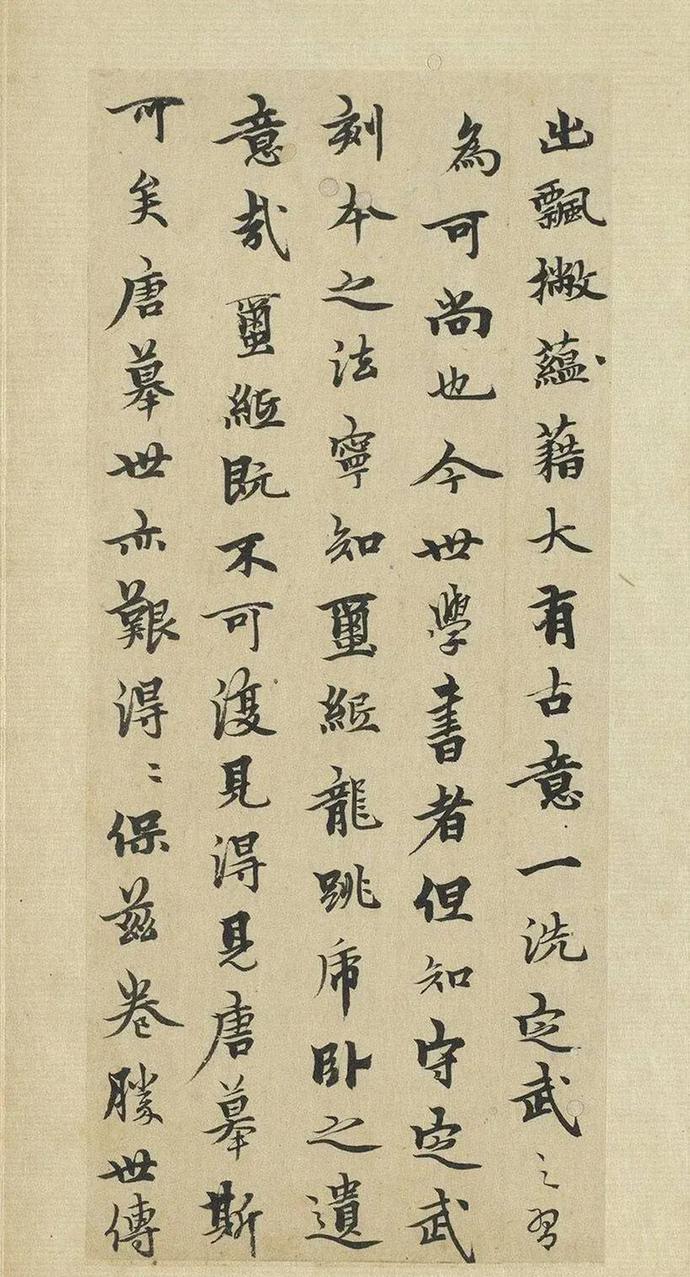 出飄撇蘊藉大有古意一洗定武之習
為可尚也今世學書者但知守定武
刻本之法寧知璽紙龍跳虎臥之遺
意哉璽紙既不可復見得見唐摹斯
可矣唐摹世亦艱得得保茲卷勝世傳